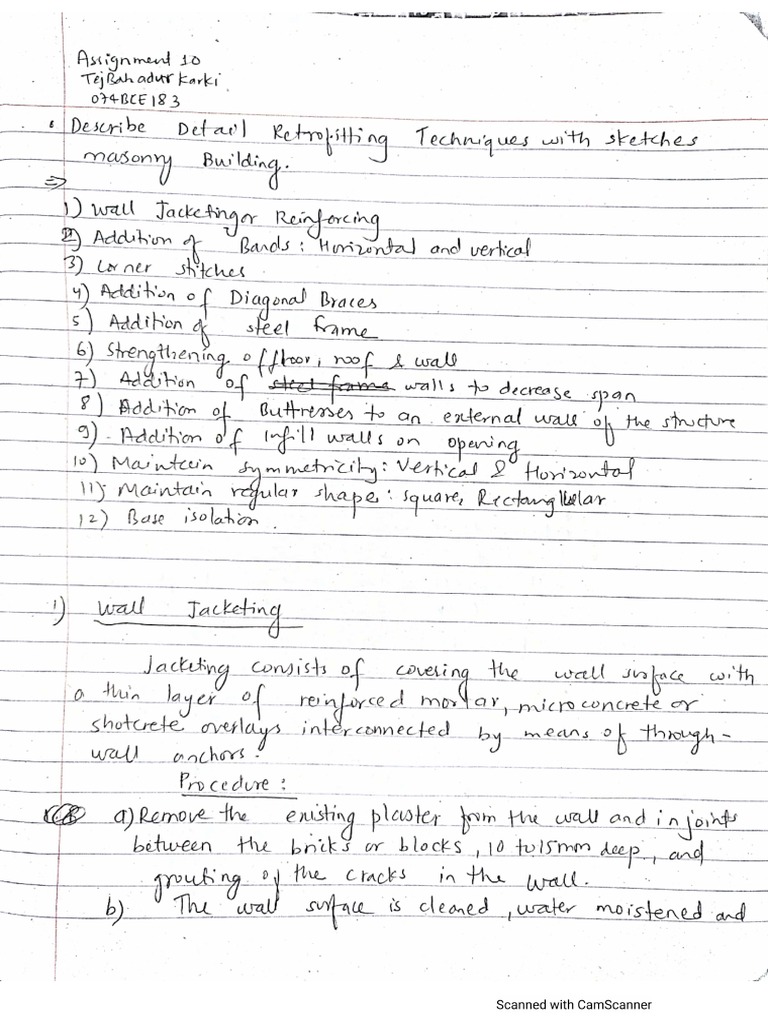 Assignment 10
Tej Bahadur Karki
074BCE183
Describe Detail Retrofitting Techniques with sketches
masonry Building.
⇒
1) Wall Jacketing or Reinforcing
2) Addition of Bands: Horizontal and vertical
3) Corner stitches
4) Addition of Diagonal Braces
5) Addition of steel frame
6) Strengthening of floor, roof & wall
7) Addition of steel frame walls to decrease span
8) Addition of Buttresses to an external wall of the structure
9) Addition of Infill walls on opening
10) Maintain symmetricity: Vertical & Horizontal
11) Maintain regular shape: square, Rectangular
12) Base isolation.
1) Wall Jacketing
Jacketing consists of covering the wall surface with
a thin layer of reinforced mortar, microconcrete or
shotcrete overlays interconnected by means of through-
wall anchors.
Procedure:
a) Remove the existing plaster from the wall and in joints
between the bricks or blocks, 10 to 15mm deep, and
grouting of the cracks in the wall.
b) The wall surface is cleaned, water moistened and
Scanned with CamScanner